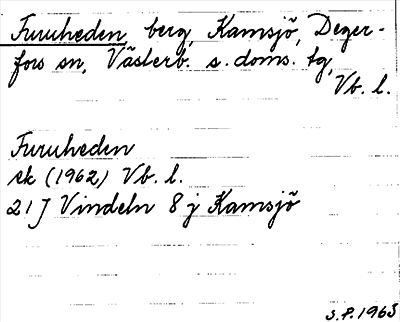 Furuheden, berg, Kamsjö, Deger-
fors sn, Västerb. s. doms. tg,
Vb. l.
Furuheden
ek (1962) Vb. l.
21 J Vindeln 8 j Kamsjö
S.P. 1963